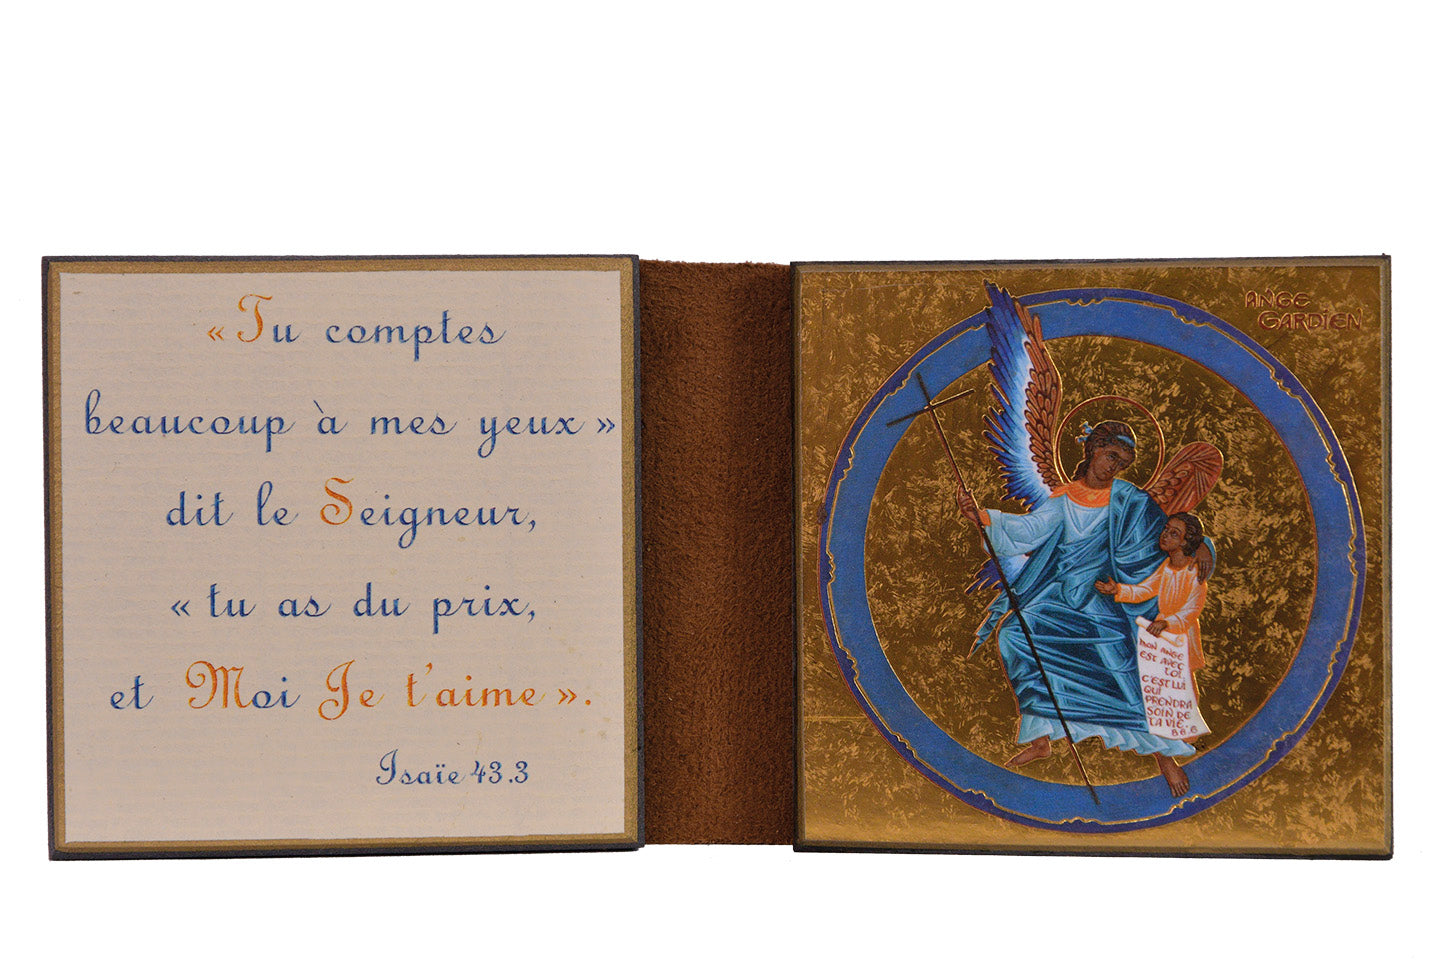 « Tu comptes
beaucoup à mes yeux »
dit le Seigneur,
« tu as du prix,
et Moi Je t'aime ».
Isaïe 43.3
ANGE
GARDIEN
MON ANGE
EST AVEC
TOI.
C'EST LUI
QUI
PRENDRA
SOIN DE
TA VIE.
B6.6